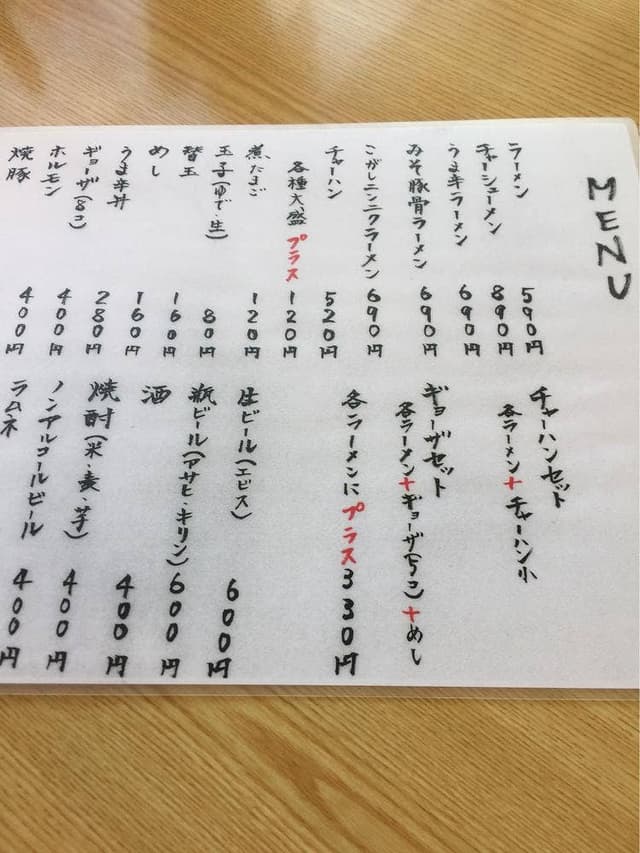 MENU
ラーメン 590円
チャーシューメン 890円
うま辛ラーメン 690円
みそ豚骨ラーメン 690円
こがしニンニクラーメン 690円
チャーハン 520円
各種大盛プラス 120円
煮たまご 120円
玉子(ゆで・生) 80円
替玉 160円
めし 160円
うま辛丼 280円
ギョーザ(8コ) 400円
ホルモン 400円
焼豚
チャーハンセット
各ラーメン+チャーハン小
ギョーザセット
各ラーメン+ギョーザ(5コ)+めし
各ラーメンにプラス330円
生ビール(エビス) 600円
瓶ビール(アサヒ・キリン) 600円
酒 400円
焼酎(米・麦・芋) 400円
ノンアルコールビール 400円
ラムネ